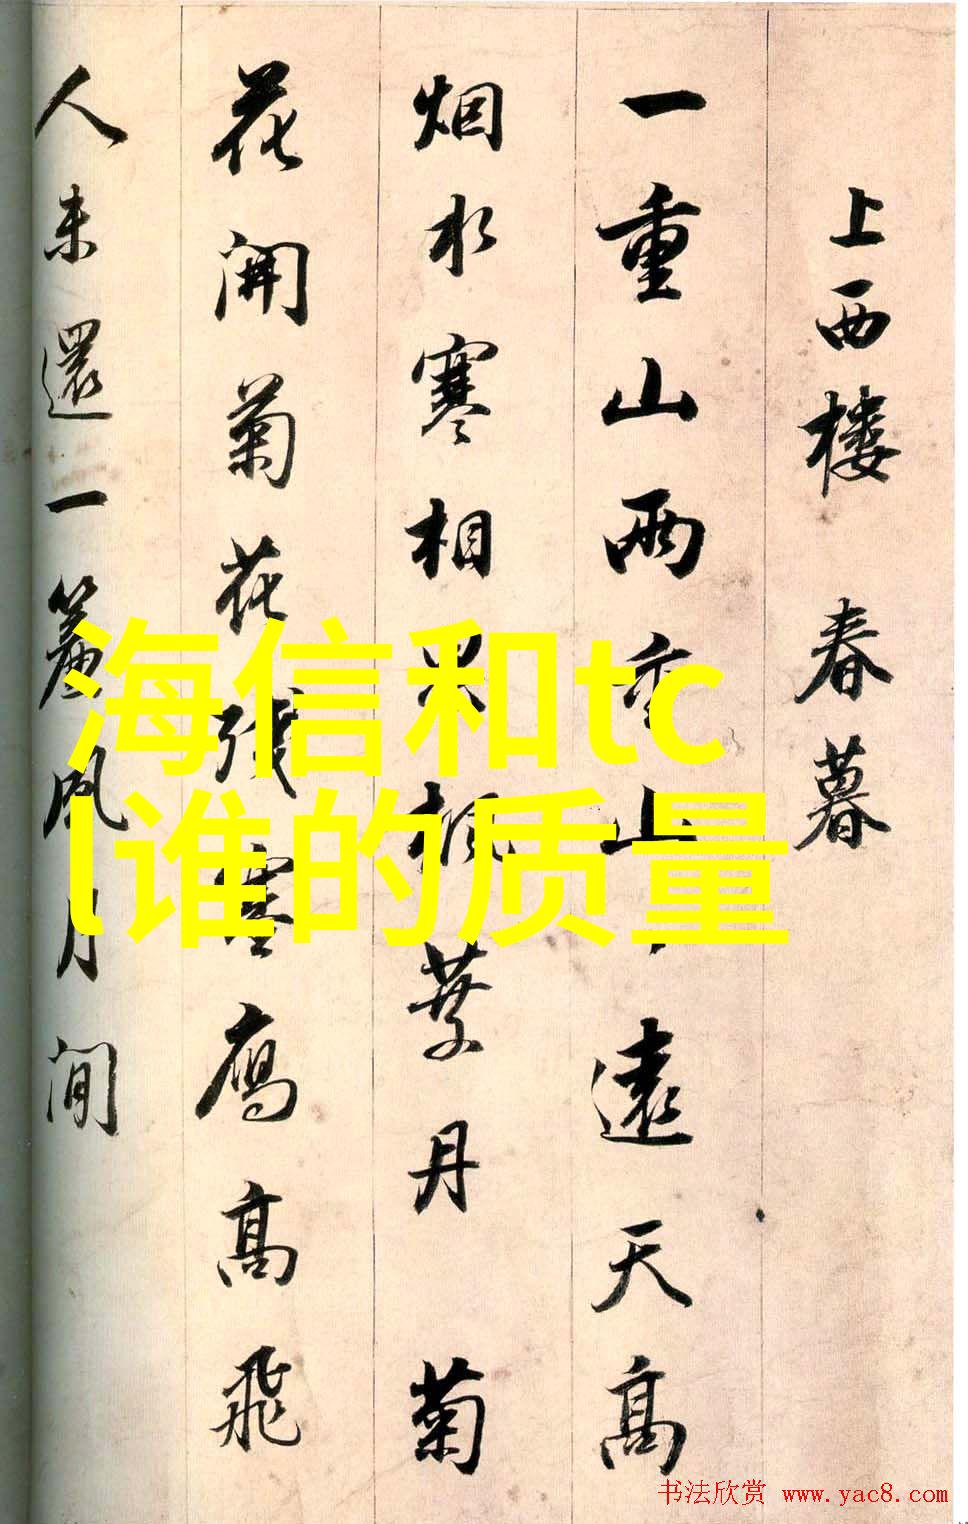 上西楼 春暮
一重山兩重山遠天高
烟水寒相思枫葉丹菊
花開菊花残塞鴈高飛
人未還一簾風月閒
海信和tc
l谁的质量
书法欣赏 www.yac8.com